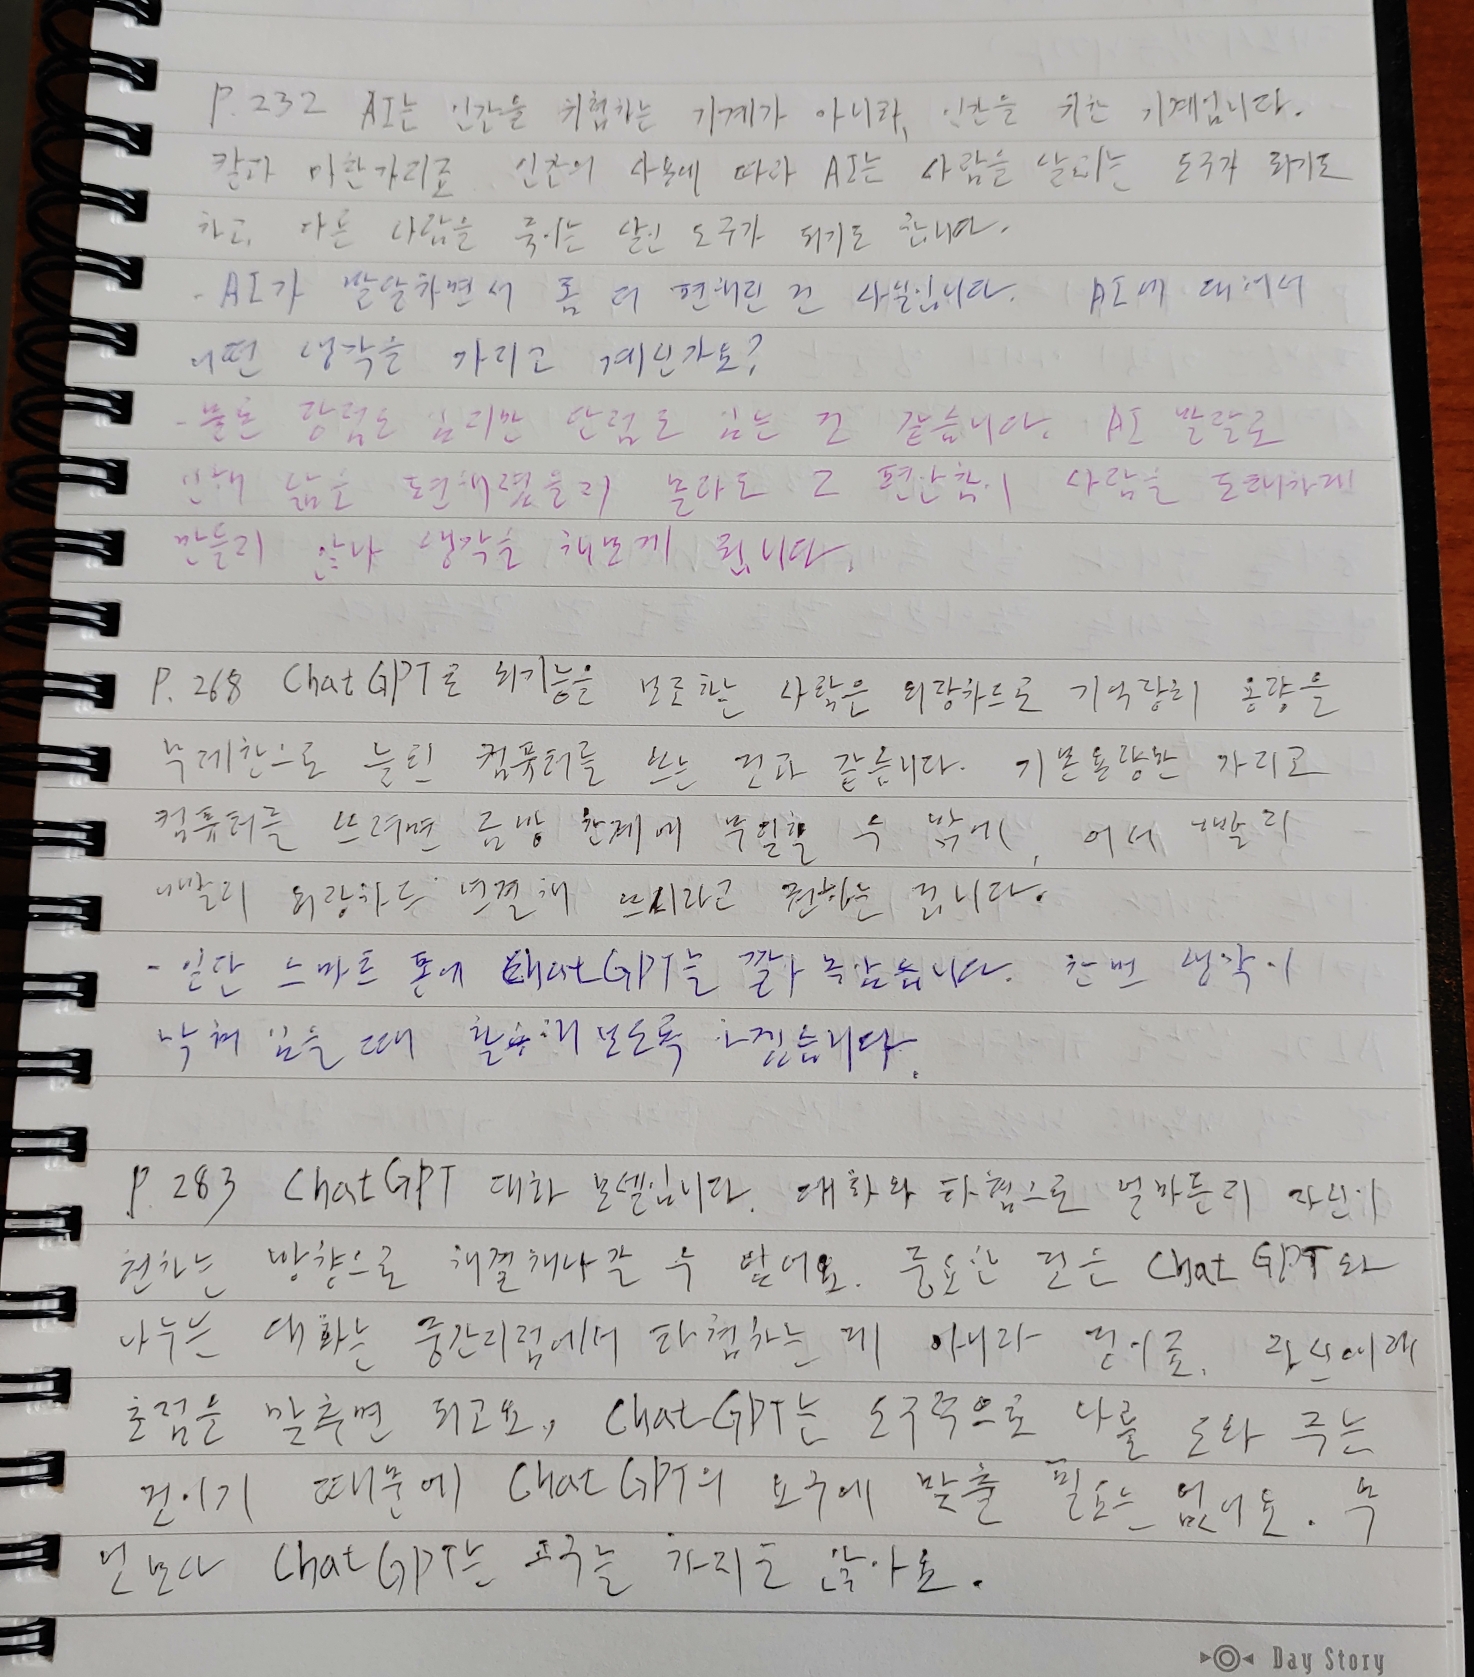 P.232 AI는 인간을 위협하는 기계가 아니라, 인간을 위한 기계입니다.
칼과 마찬가지로 인간의 사용에 따라 AI는 사람을 살리는 도구가 되기도
하고, 다른 사람을 죽이는 살인 도구가 되기도 합니다.
- AI가 발달하면서 좀 더 편해진 건 사실입니다. AI에 대해서
어떤 생각을 가지고 계신가요?
- 물론 장점도 있지만 단점도 있는 것 같습니다. AI 발달로
인해 삶은 편해졌을지 몰라도 그 편안함이 사람을 도태하게
만들지 않나 생각을 해보게 됩니다.
P. 268 ChatGPT로 뇌기능을 보조하는 사람은 외장하드로 기억장치 용량을
무제한으로 늘린 컴퓨터를 쓰는 것과 같습니다. 기본용량만 가지고
컴퓨터를 쓰려면 금방 한계에 부딪힐 수 밖에, 어서 빨리
빨리 외장하드 연결해 쓰시라고 권하는 겁니다.
- 일단 스마트 폰에 ChatGPT를 깔아 놓았습니다. 한번 생각이
막혀 있을 때 활용해보도록 하겠습니다.
P. 283 ChatGPT 대화 모델입니다. 대화와 타협으로 얼마든지 자신이
원하는 방향으로 해결해나갈 수 있어요. 중요한 것은 ChatGPT와
나누는 대화는 중간지점에서 타협하는 게 아니라 것이죠.
초점을 맞추면 되고요, ChatGPT는 도구적으로 나를 도와 주는
것이기 때문에 ChatGPT의 요구에 맞출 필요는 없어요. 무
엇보다 ChatGPT는 요구를 하지도 않아요.
Day Story